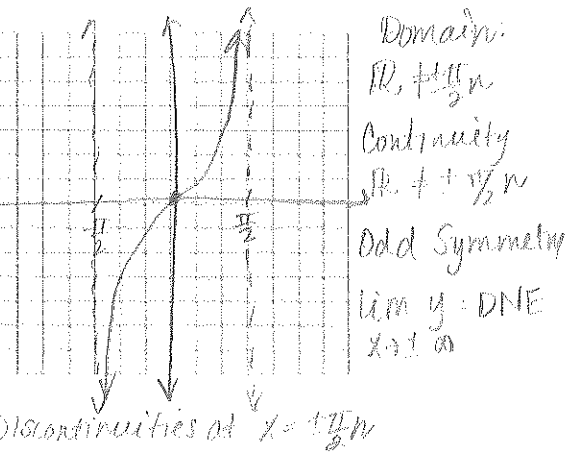 Domain:
ℝ, ≠ ±π/2 n
Continuity
ℝ ≠ ± π/2 n
π/2
π/2
Odd Symmetry
lim y = DNE
x→± ∞
Discontinuities at x = ±π/2 n